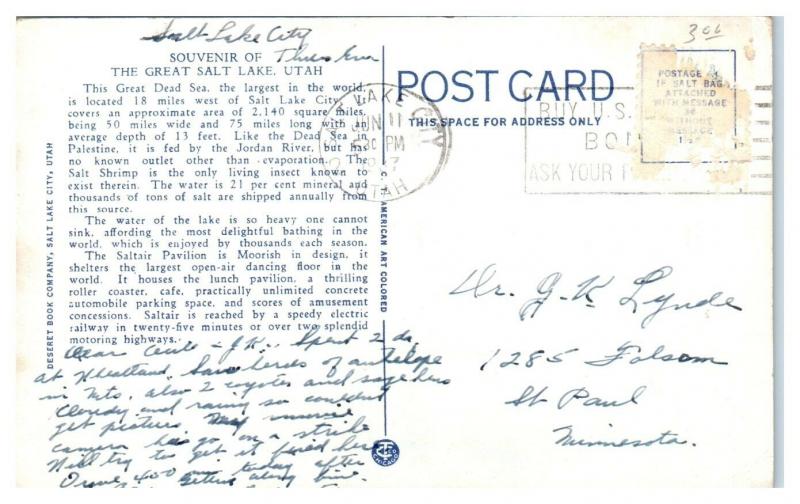 Salt Lake City
SOUVENIR OF Thurs Eve
THE GREAT SALT LAKE, UTAH
This Great Dead Sea, the largest in the world,
is located 18 miles west of Salt Lake City. It
covers an approximate area of 2,140 square miles,
being 50 miles wide and 75 miles long with an
average depth of 13 feet. Like the Dead Sea in
Palestine, it is fed by the Jordan River, but has
no known outlet other than evaporation. The
Salt Shrimp is the only living insect known to
exist therein. The water is 21 per cent mineral and
thousands of tons of salt are shipped annually from
this source.
The water of the lake is so heavy one cannot
sink, affording the most delightful bathing in the
world, which is enjoyed by thousands each season.
The Saltair Pavilion is Moorish in design, it
shelters the largest open-air dancing floor in the
world. It houses the lunch pavilion, a thrilling
roller coaster, cafe, practically unlimited concrete
automobile parking space, and scores of amusement
concessions. Saltair is reached by a speedy electric
railway in twenty-five minutes or over two splendid
motoring highways.
DESERET BOOK COMPANY, SALT LAKE CITY, UTAH
Dear J.K. Spent 2 da.
at Wheatland. Saw herds of antelope
in Mts, also 2 coyotes and sage hens
Cloudy and rainy so couldn't
get pictures. movie
camera has go on a strike
Will try to get it fixed here
Drove 400 today after
getting along fine.
C. AMERICAN ART COLORED
CHICAGO
POST CARD
THIS SPACE FOR ADDRESS ONLY
LAKE CITY
JUN 11
30 PM
7
UTAH
BUY U.S.
BON
ASK YOUR
300
POSTAGE
IF SALT BAG
ATTACHED
WITH MESSAGE
WITHOUT
MESSAGE
Dr. J. K. Lynde
1285 Folsom
St Paul
Minnesota.